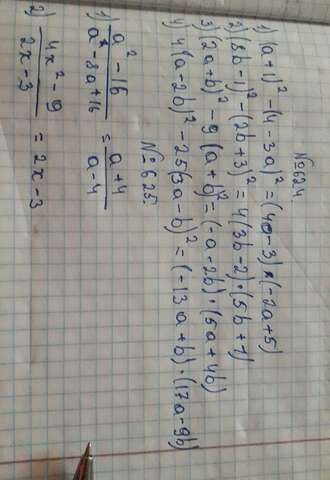 №624.
1) (a+1)² - (4-3a)² = (4a-3)·(-2a+5)
2) (8b-1)² - (2b+3)² = 4(3b-2)·(5b+1)
3) (2a+b)² - 9(a+b)² = (-a-2b)·(5a+4b)
4) 4(a-2b)² - 25(3a-b)² = (-13a+b)·(17a-9b)
№625.
1) a²-16 / a²-8a+16 = a+4 / a-4
2) 4x²-9 / 2x-3 = 2x-3